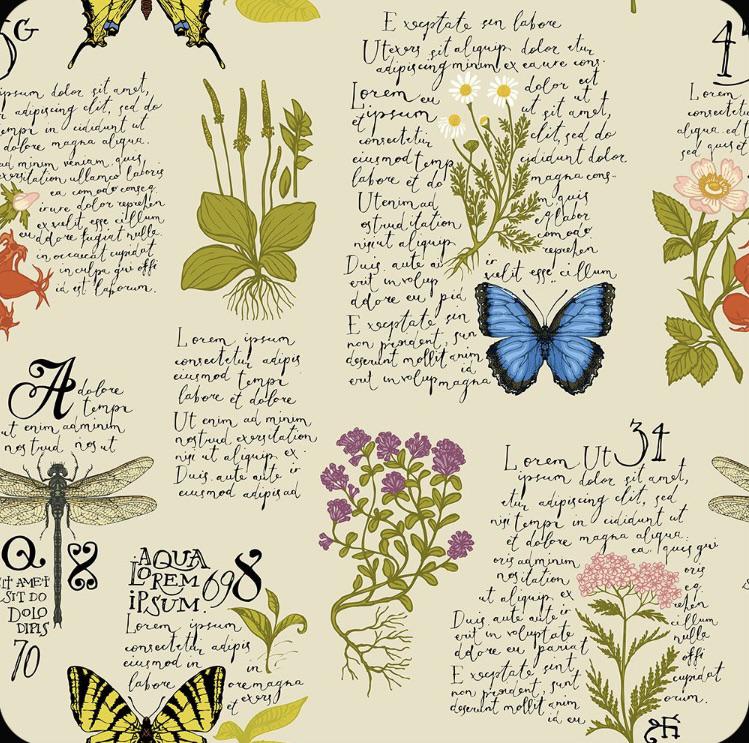 5G
ipsum dolor sit amet,
adipiscing elit, sed do
tempr in cididunt ut
dolore magna aliqua.
ad minim veniam, quis
exersitation ullamco laboris
ea comodo conseq.
irure dolor reprehen
ex velit esse cillum
eu dolore fugiat nulla
in occaecat cupidat
in culpa qui offi
id est laborum.
A dolore
tempr
ut enim adminim
nostrud nos ut
Q
SIT AMET
SIT DO
DOLO
DIPIS
70
Lorem ipsum
consectetur adipis
eiusmod tempr
labore et dolore
Ut enim ad minim
nostrud exersitation
nisi ut aliquip ex
Duis aute aute ir
eiusmod adipisad
AQUA
LOREM 698
IPSUM.
Lorem ipsum
consectetur adipis
eiusmod in in
labore ore magna
et
Exceptate sin labore
Utexers sit aliquip dolor etur
adipiscing minim ex ea ure cons.
Lorem eu dolor est
et ipsum ut sit amet,
consectetur clit, sed do
eiusmod temp cididunt dolor
labore et do magna cons-
Utenim ad m quis
ostrud itation ex labor
nisi ut aliquip comodo
reprehen
Duis aute au ir velit esse cillum
erit in volup
dolore eu pid
Exceptate sin
non proident, sun
deserunt mollit anim
erit in volup magna
31
Lorem Ut
ipsum dolor sit amet,
etur adipiscing elit, sed
nisi tempr in cididunt ut
et dolore magna aliqua.
ea quis qui
oris adminim oris
nositation ea
ut aliquip ex rehen
Duis aute aute ir cillum
erit in voluptate nulla
dolore eu pariat offi
Exceptate sint cupidat
non proident, sunt orum.
deserunt mollit anim
id eu
4
Lorem
consectetur
aliqua. ea
sed quis et